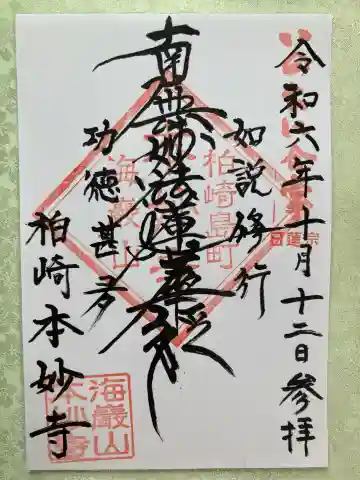 令和六年十月十二日参拝
如説修行
南無妙法蓮華経
功徳甚多
柏崎本妙寺
柏崎島町
海巌山
日蓮宗
海巌山
本妙寺